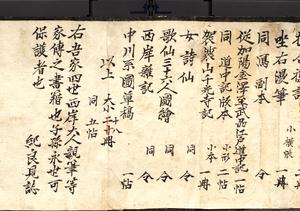 坐右漫筆 一冊
同 寫副本 仝
従加陽金澤至武品江戸道中記 一帖
同 道中記 版本 小形 二帖
賀越山千光寺記 小本 一冊
女詩仙 同 仝
歌仙三十六人圖繪 同 仝
西岸雜記 仝
中川系圖草稿 一帖
以上 大小二十八冊
同 五帖
右吾家四世西岸大人親筆等
家傳之書籍也子孫永世可
保護者也
紀良見誌